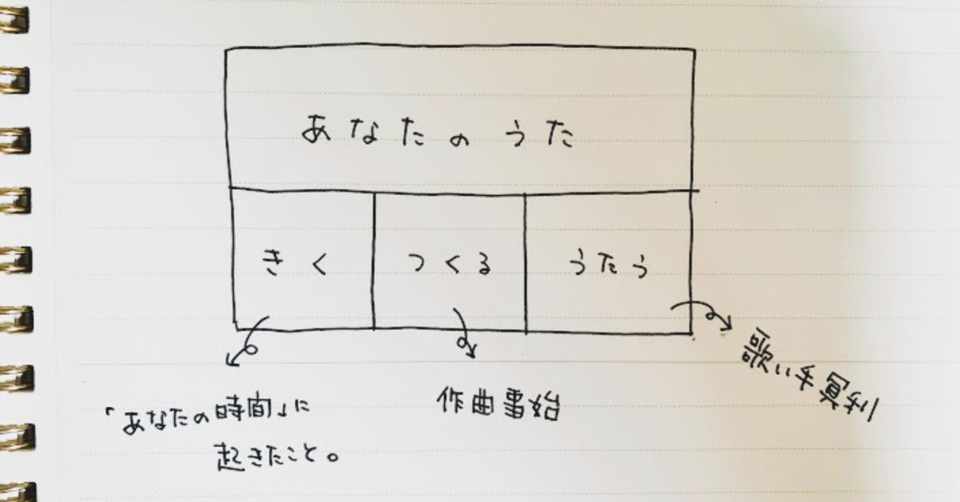 あなたのうた
きく
つくる
うたう
「あなたの時間」に
起きたこと。
作曲事始
歌い手冥利